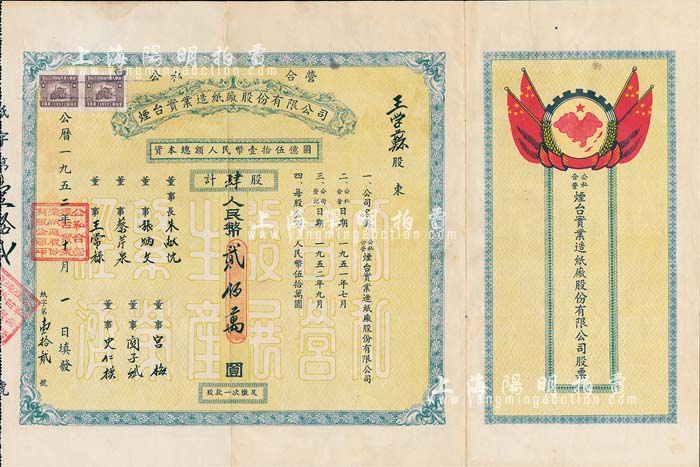 公私
合營
煙台實業造紙廠股份有限公司
資本總額人民幣壹拾伍億圓
王学蘇 股東
一、公司名稱 公私合營 煙台實業造紙廠股份有限公司
二、公私合營日期 一九五一年七月
三、公司登記日期 一九五二年九月
四、每股 人民幣伍拾萬圓
計 肆 股
人民幣 貳佰萬 圓
董事長 朱敬忱
董事 張炳文
董事 蔡岸泉
董事 王常禄
董事 宮極
董事 閔子斌
董事 史仁樸
公曆一九五二年十月一日填發
紙字第壹拾貳號
股款一次繳足
公私合營 煙台實業造紙廠股份有限公司股票
上海陽明拍賣
yangmingauction.com